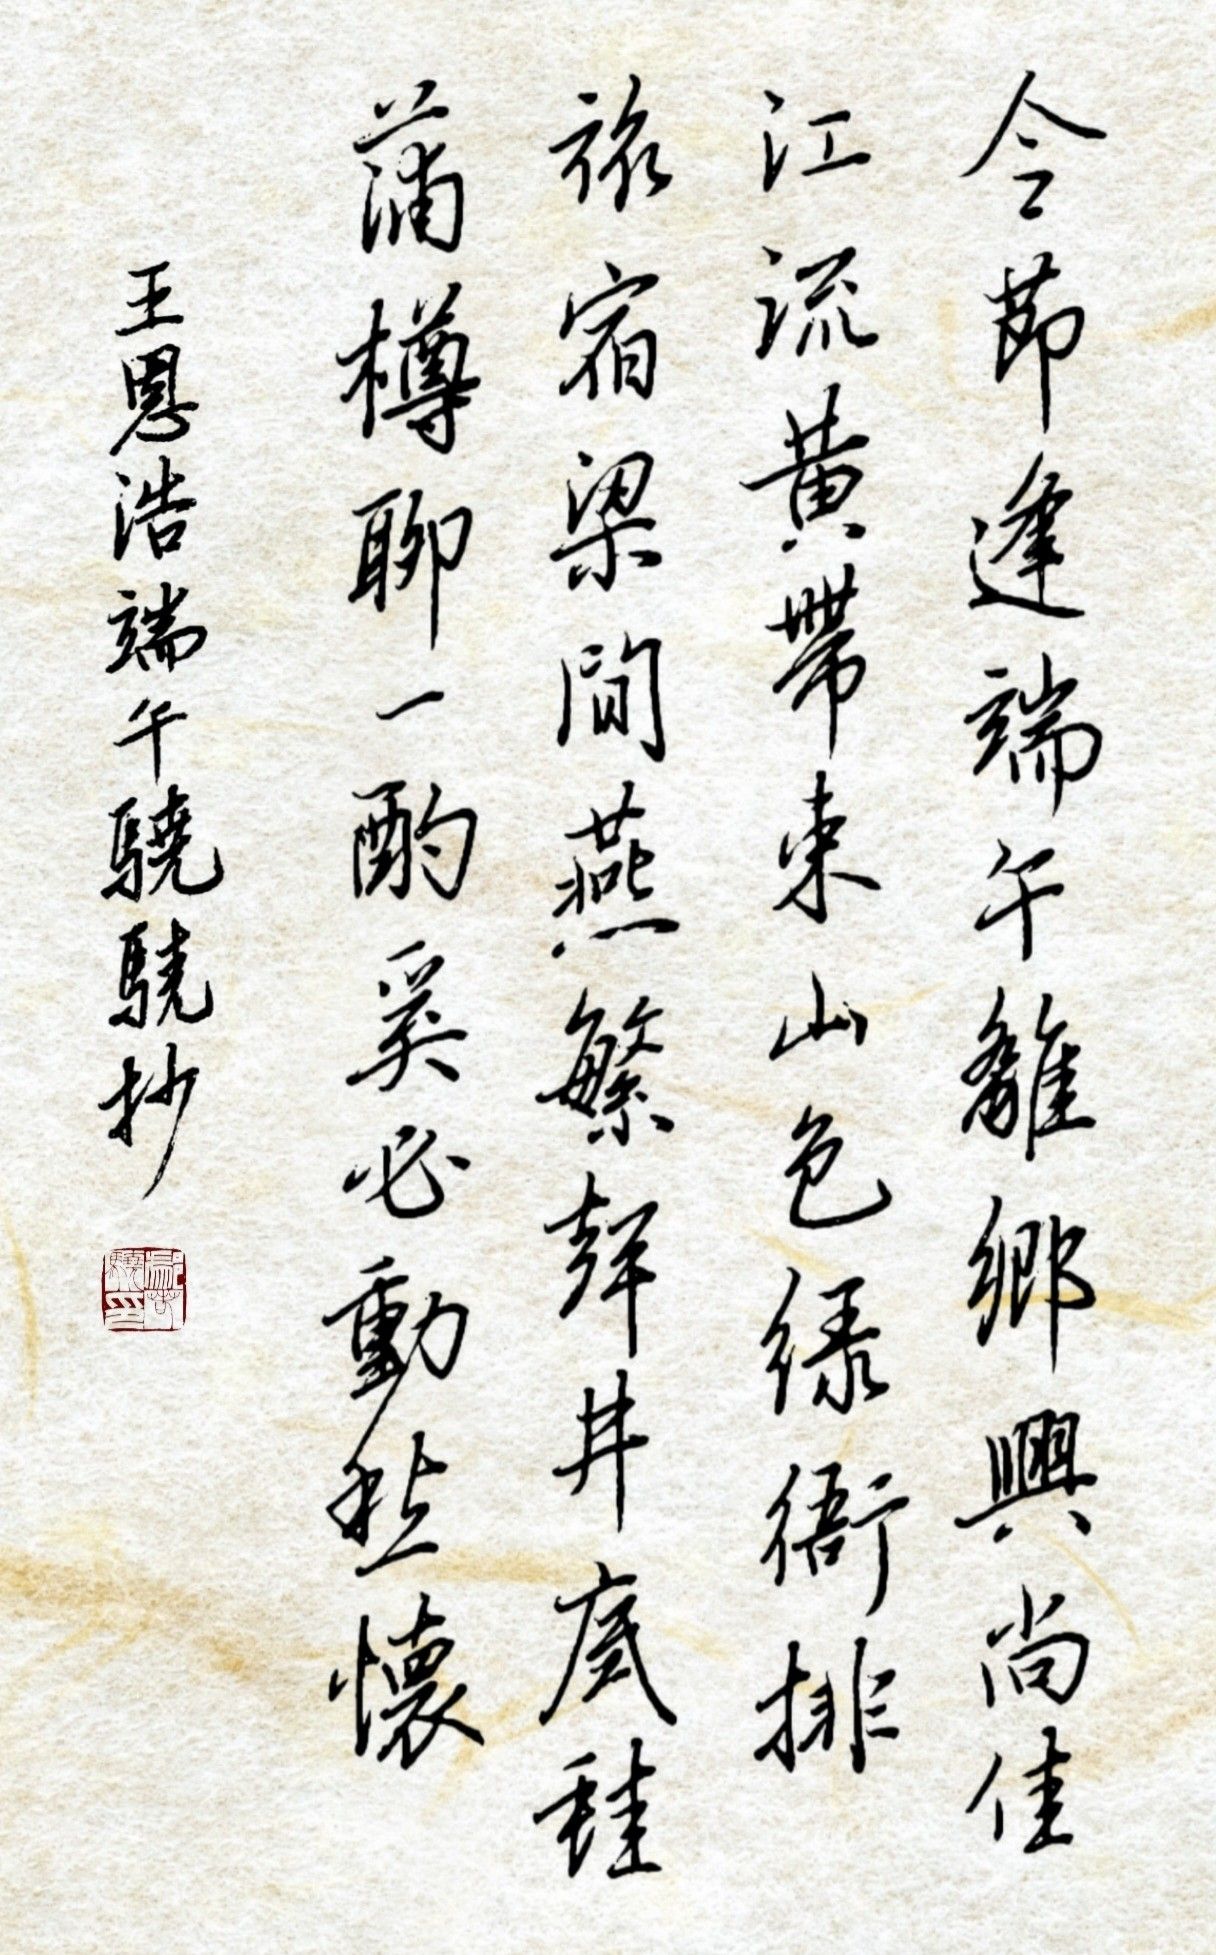 今節逢端午離鄉興尚佳
江流黃帶束山色绿衙排
旅宿梁間燕繁聲井底蛙
蒲樽聊一酌奚必動愁懷
王恩浩端午驍驍抄